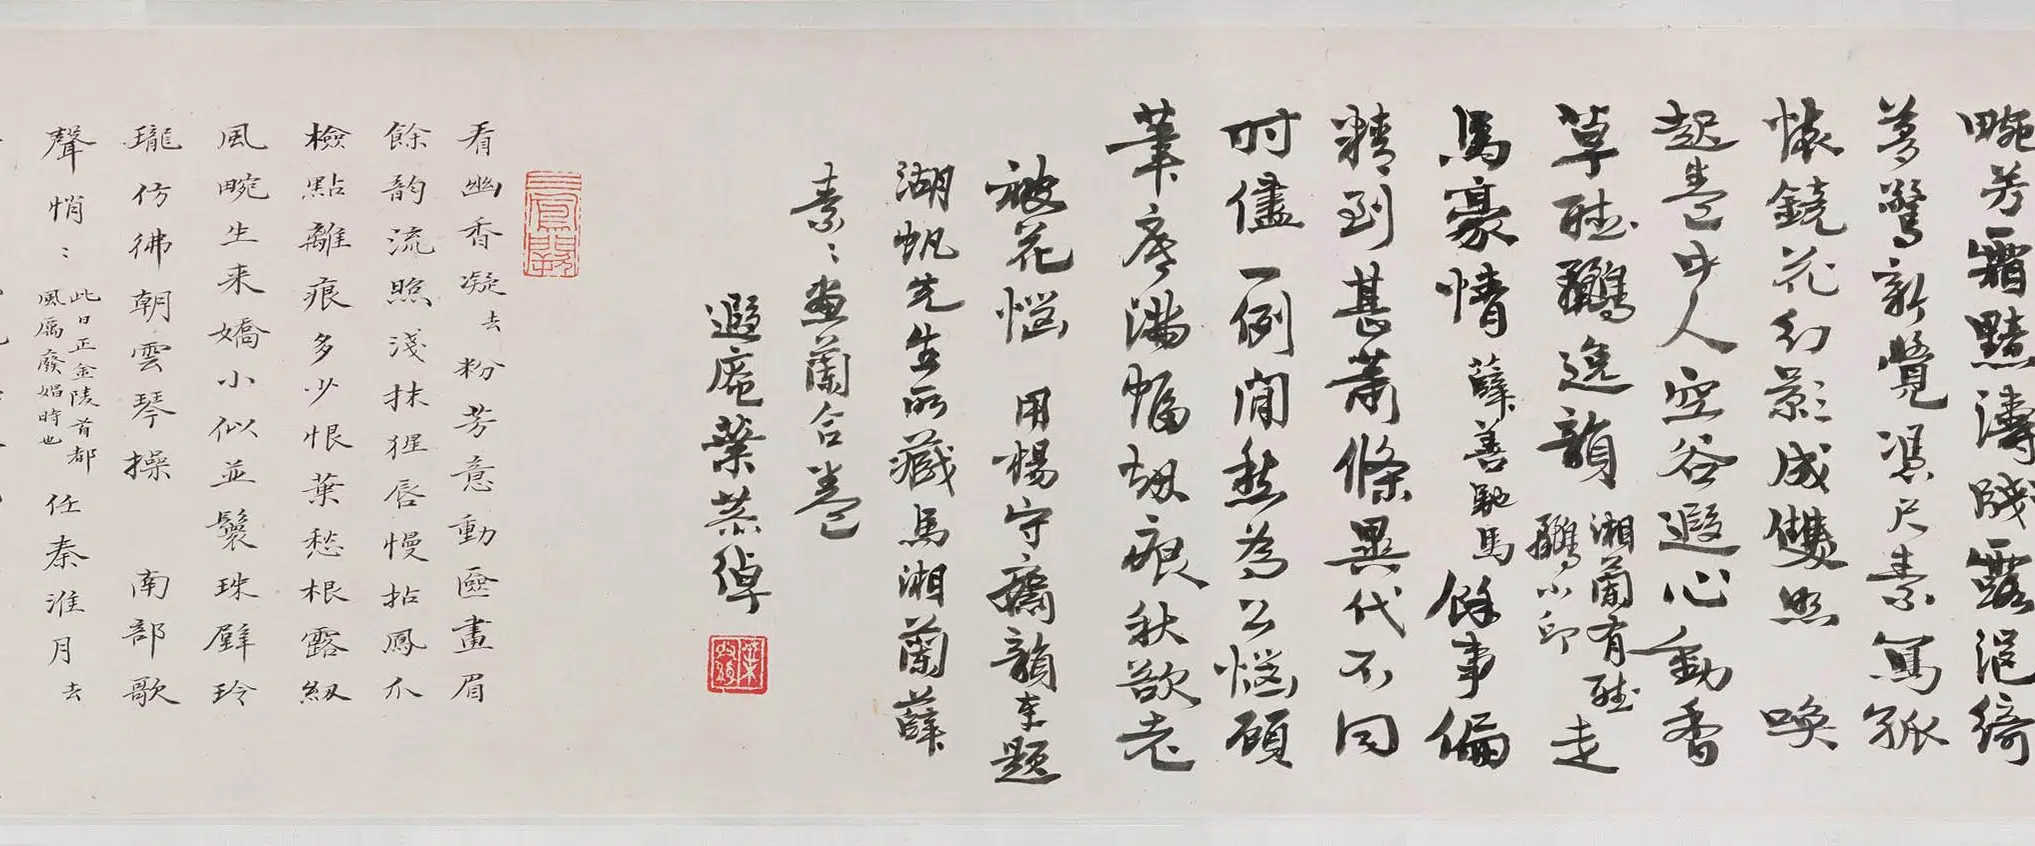 畹芳霜黯濤牋露浥綺
夢驚新覺凴尺素寫孤
懷鏡花幻影成雙照 喚
起卷中人空谷遐心動香
草聽鸝逸韻湘蘭有聽鸝小印走
馬豪情薛善馳馬餘事偏
精到甚蕭條異代不同
時儘一例閒愁為公惱顧
筆底滿幅劫痕秋欲老
被花惱 用楊守齋韻奉題
湖帆先生所藏馬湘蘭薛
素二畫蘭合卷
遐庵葉恭綽
看幽香凝去粉芳意動匳畫眉
餘韵流照淺抹猩唇慢拈鳳爪
檢點離痕多少恨葉愁根露紉
風畹生来嬌小似並鬟珠璧玲
瓏仿彿朝雲琴操 南部歌
聲悄二此日正金陵首都風厲廢娼時也任秦淮月去